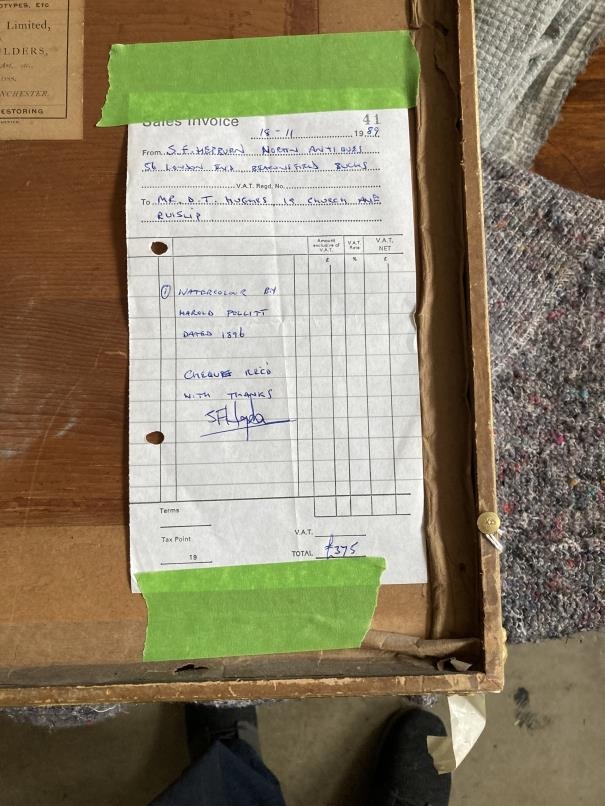 OTYPES, ETC
Limited,
LDERS,
Art, etc.,
NCHESTER.
ESTORING
Sales Invoice
41
18-11 1989
From S.F. HEPBURN NORTON ANTIQUES
56 LONDON END BEACONSFIELD BUCKS
V.A.T. Regd. No.
To MR. D.T. HUGHES 19 CHURCH AVE
RUISLIP
Amount exclusive of V.A.T. V.A.T. Rate V.A.T. NET
£ % £
① WATERCOLOUR BY
HAROLD POLLITT
DATED 1896
CHEQUE REC'D
WITH THANKS
Terms
Tax Point
19
V.A.T.
TOTAL £375